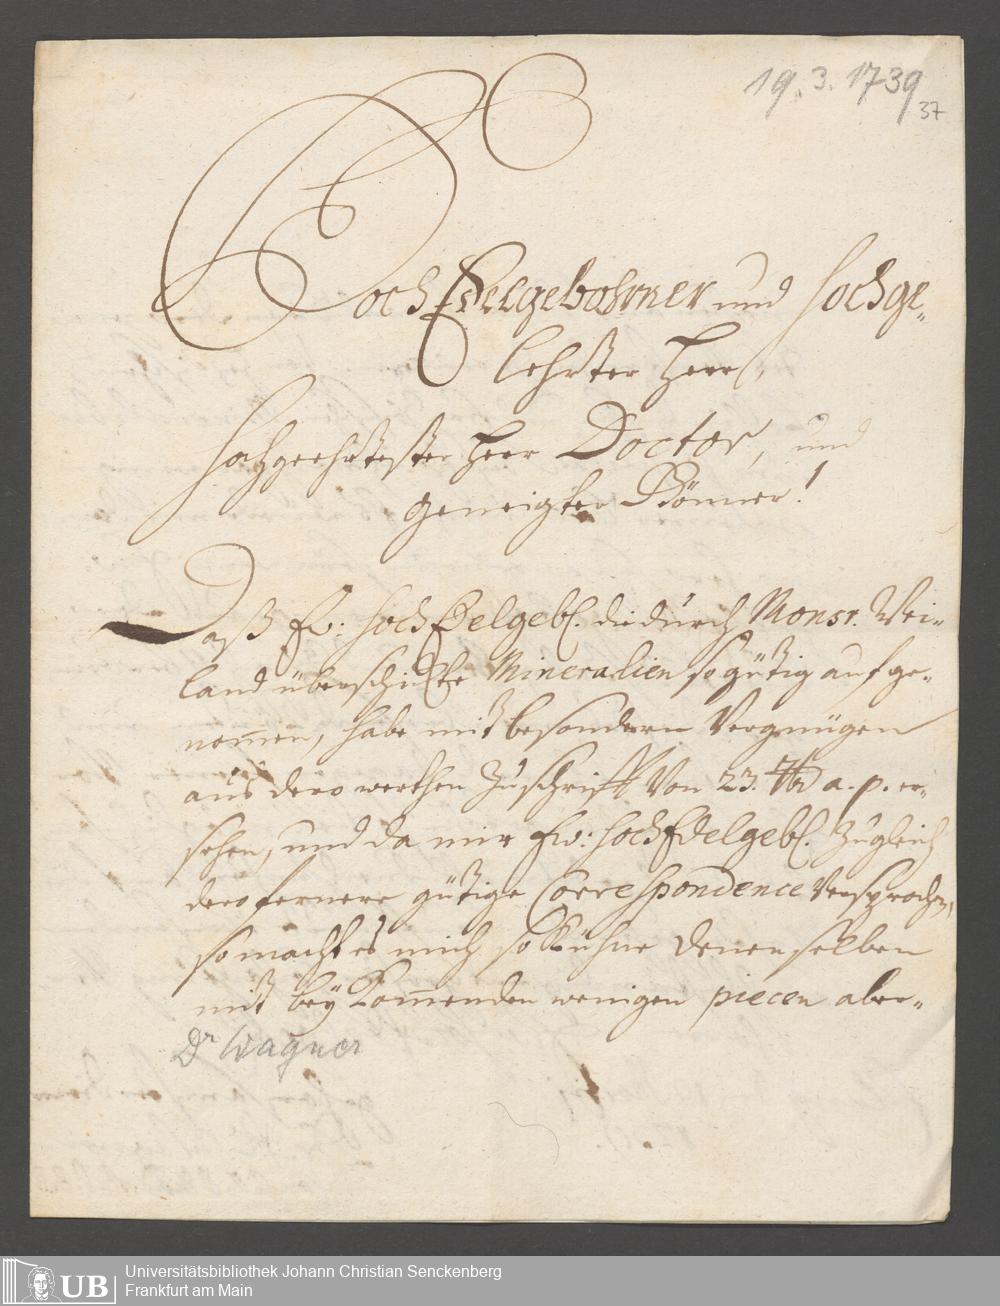 19. 3. 1739
37
HochEdelgebohrner und Hochge-
lehrter Herr,
Hochgeehrtester Herr Doctor, und
geneigter Gönner!
Daß Ew: HochEdelgebl. die durch Monsr. Wei-
land überschickte Mineralien so gütig aufge-
nom̄en, habe mit besondern Vergnügen
aus dero werthen Zuschrifft von 23. a. p. er-
sehen, und da mir Ew: HochEdelgebl. zugleich
dero fernere gütige Correspondence versprochen,
so macht es mich so kühne denenselben
mit bey kom̄enden wenigen piecen aber-
Dr Wagner
UB
Universitätsbibliothek Johann Christian Senckenberg
Frankfurt am Main